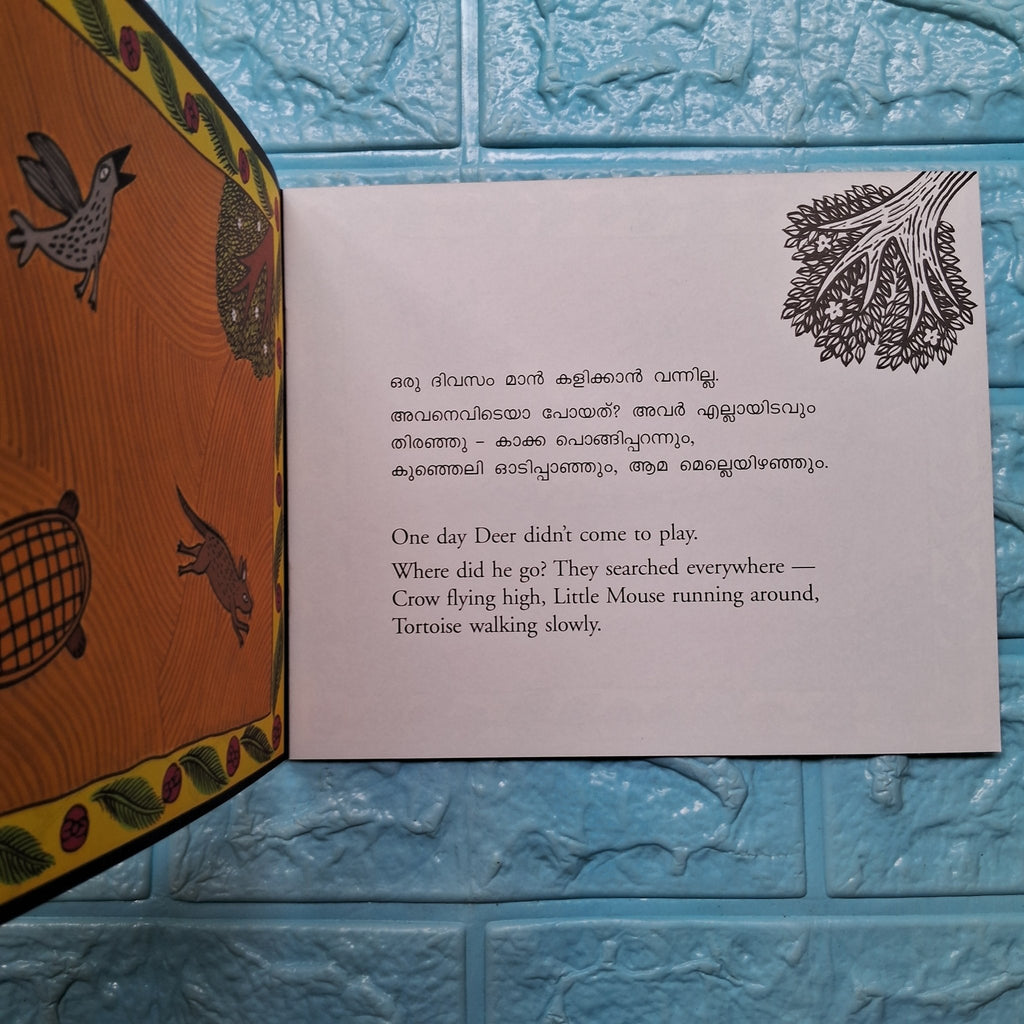 ഒരു ദിവസം മാൻ കളിക്കാൻ വന്നില്ല.
അവനെവിടെയാ പോയത്? അവർ എല്ലായിടവും
തിരഞ്ഞു – കാക്ക പൊങ്ങിപ്പറന്നും,
കുഞ്ഞെലി ഓടിപ്പാഞ്ഞും, ആമ മെല്ലെയിഴഞ്ഞും.
One day Deer didn't come to play.
Where did he go? They searched everywhere —
Crow flying high, Little Mouse running around,
Tortoise walking slowly.